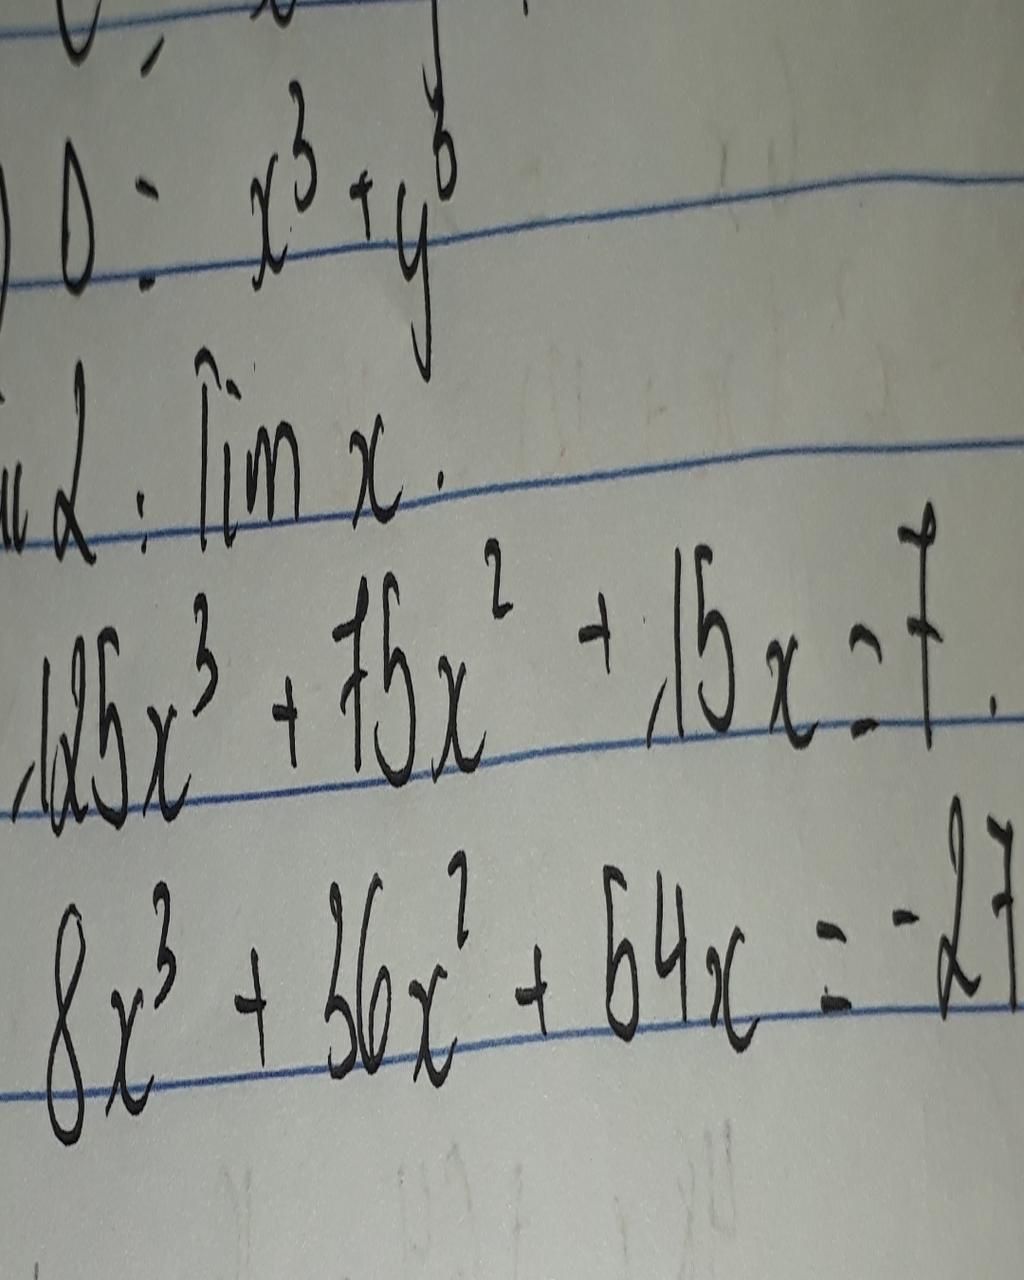 ) D = x³ + y³
2 : Tìm x.
125x³ + 75x² + 15x = 7.
8x³ + 36x² + 54x = -27